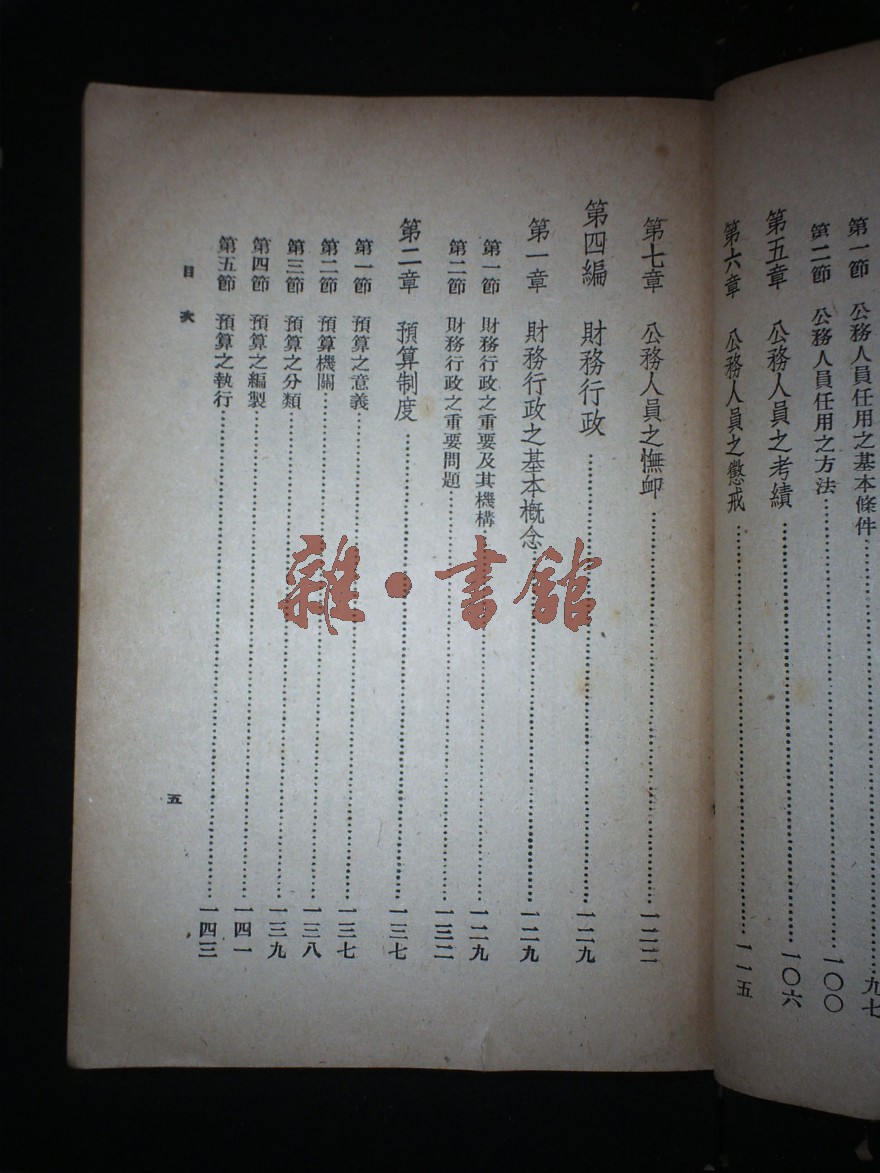 第一節 公務人員任用之基本條件…九七
第二節 公務人員任用之方法…一〇〇
第五章 公務人員之考績…一〇六
第六章 公務人員之懲戒…一一五
第七章 公務人員之憮卹…一二二
第四編 財務行政…一二九
第一章 財務行政之基本概念…一二九
第一節 財務行政之重要及其機構…一二九
第二節 財務行政之重要問題…一三二
第二章 預算制度…一三七
第一節 預算之意義…一三七
第二節 預算機關…一三八
第三節 預算之分類…一三九
第四節 預算之編製…一四一
第五節 預算之執行…一四三
目次
五
雜·書館